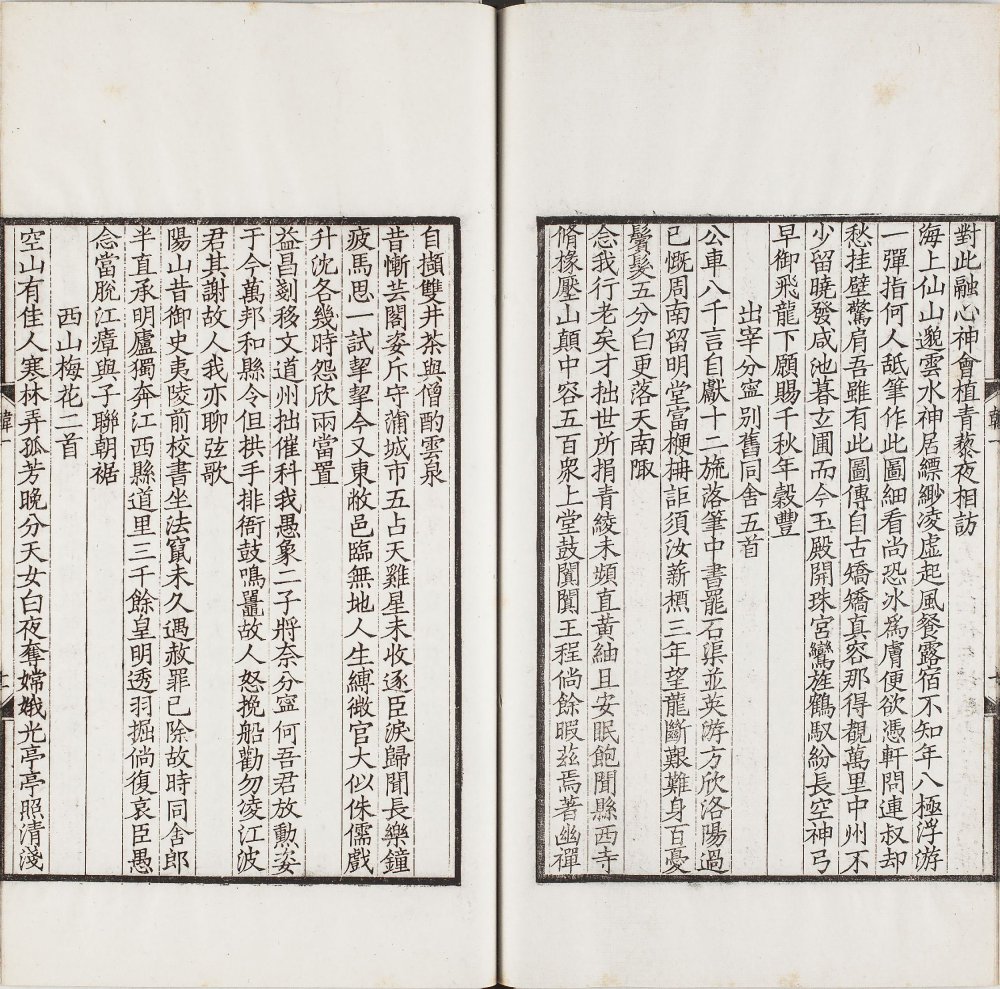 對此融心神會植青藜夜相訪
海上仙山邈雲水神居縹緲凌虛起風餐露宿不知年八極浮游
一彈指何人舐筆作此圖細看尚恐冰爲膚便欲憑軒問連叔却
愁挂壁驚肩吾雖有此圖傳自古矯矯真容那得覩萬里中州不
少留曉發咸池暮立圃而今玉殿開珠宮鸞旌鶴馭紛長空神弓
早御飛龍下願賜千秋年穀豐
出宰分寧別舊同舍五首
公車八千言自獻十二旒落筆中書罷石渠並英游方欣洛陽過
已慨周南留明堂富楩枏詎須汝薪槱三年望龍斷艱難身百憂
鬢髮五分白更落天南陬
念我行老矣才拙世所捐青綾未頻直黃紬且安眠飽聞縣西寺
脩椽壓山顛中容五百衆上堂鼓闐闐王程倘餘暇茲焉著幽禪
自擷雙井茶與僧酌雲泉
昔慚芸閣姿斥守蒲城市五占天雞星未收逐臣淚歸聞長樂鐘
疲馬思一試挈挈今又東敝邑臨無地人生縛微官大似侏儒戲
升沈各幾時怨欣兩當置
益昌剗移文道州拙催科我愚象二子將奈分寧何吾君放勳姿
于今萬邦和縣令但拱手排衙鼓鳴鼉故人怒挽船勸勿凌江波
君其謝故人我亦聊弦歌
陽山昔御史夷陵前校書坐法竄未久遇赦罪已除故時同舍郎
半直承明廬獨奔江西縣道里三千餘皇明透羽掘倘復哀臣愚
念當脫江瘴與子聯朝裾
西山梅花二首
空山有佳人寒林弄孤芳晚分天女白夜奪嫦娥光亭亭照清淺
韓一